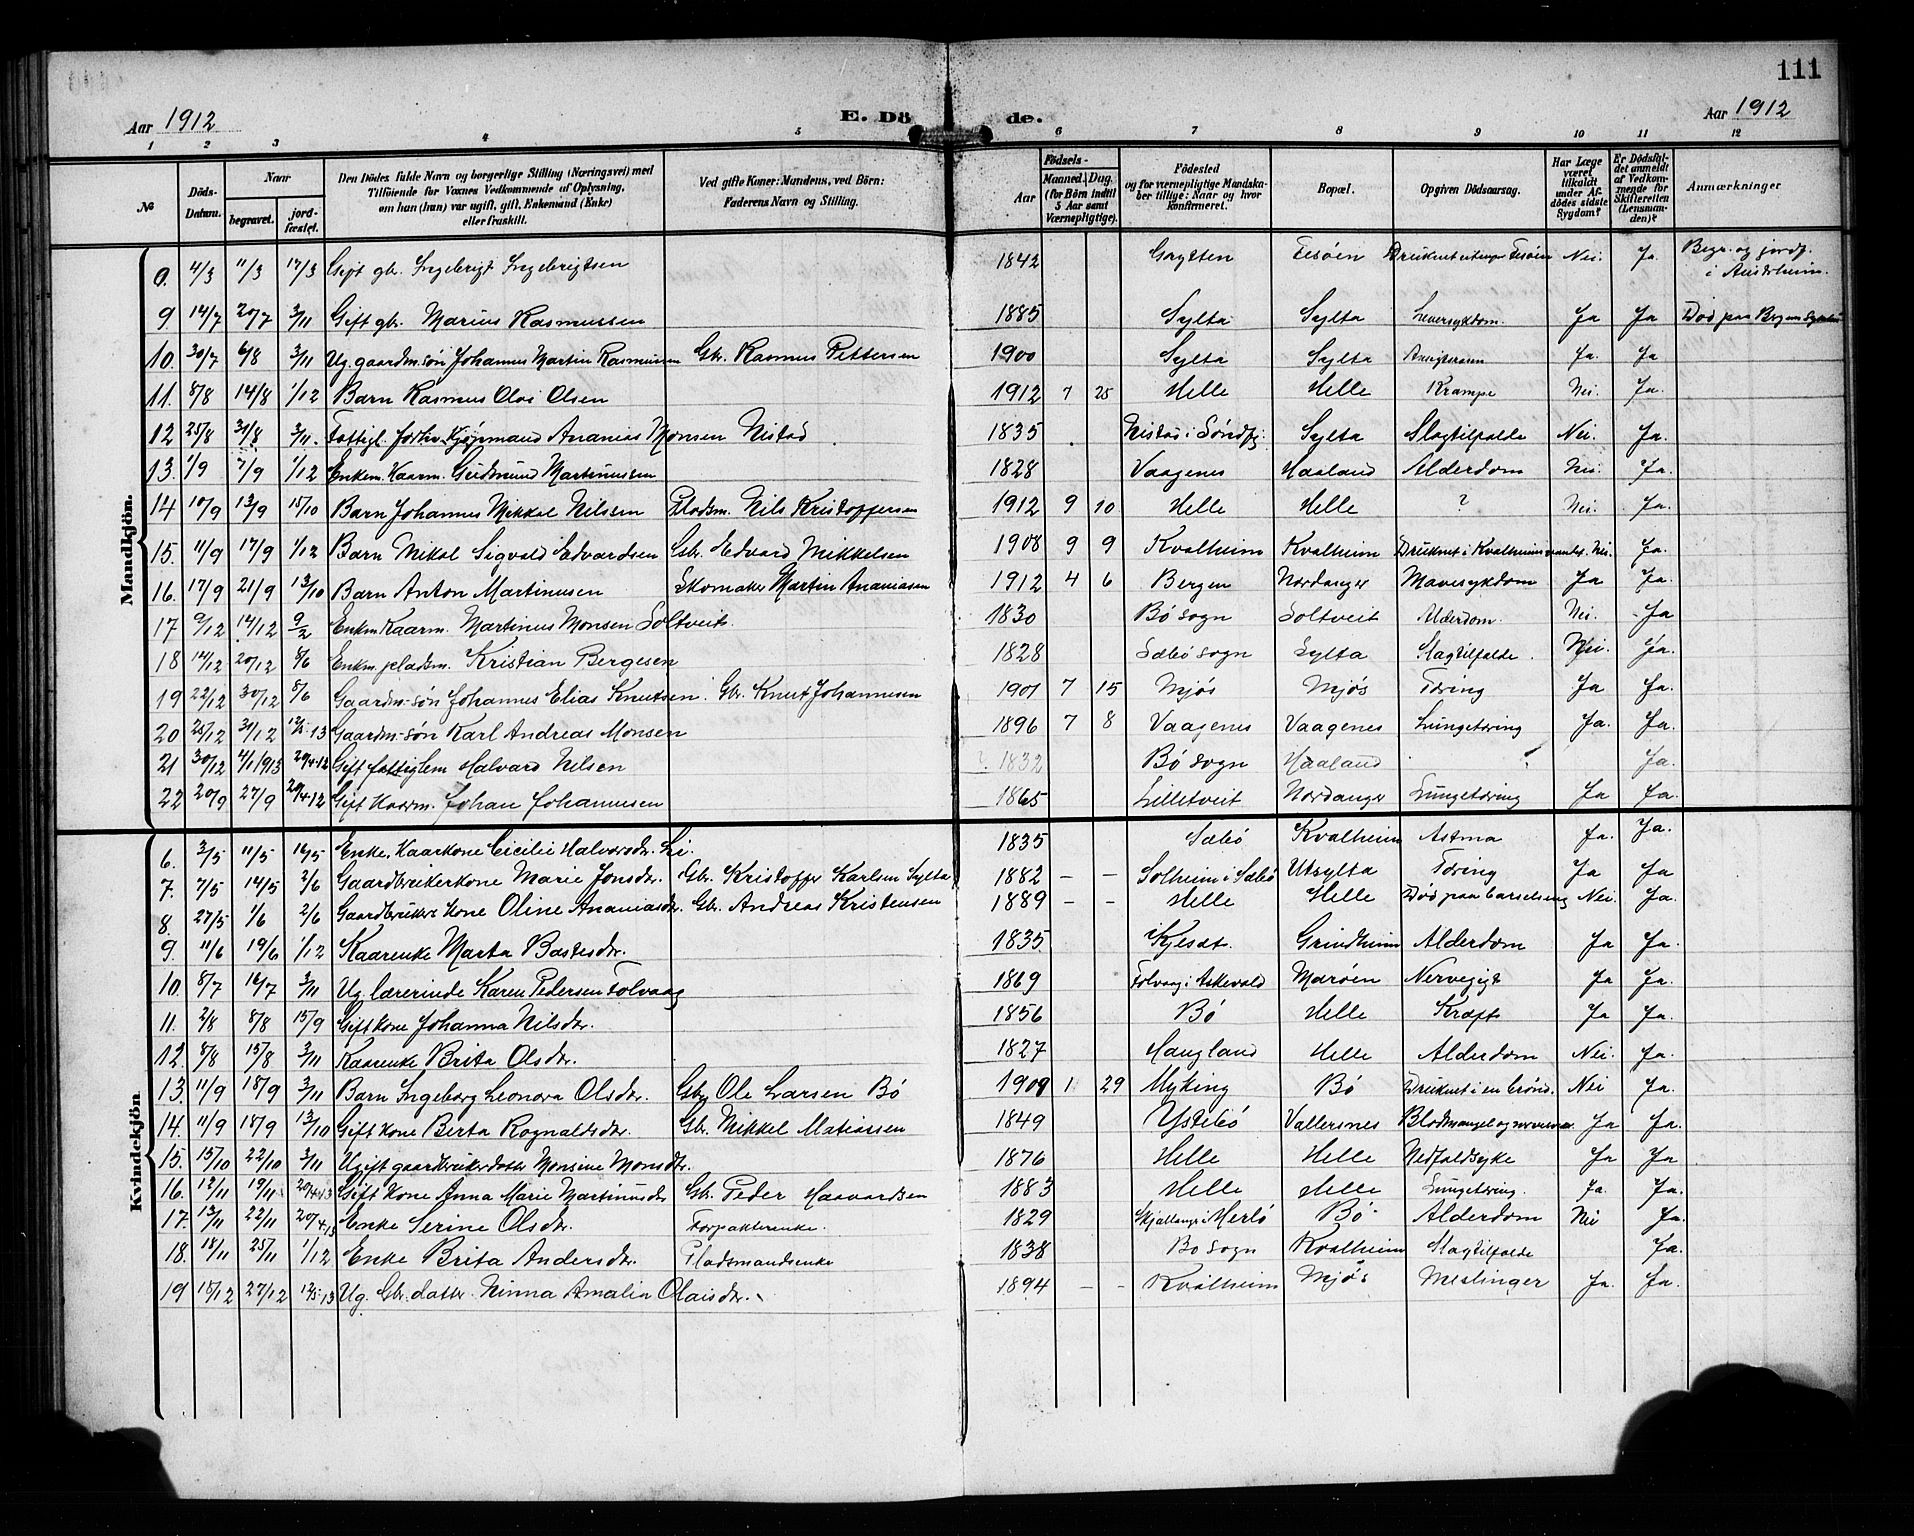 111
Aar 1912
E. Dö de.
Aar 1912
1 2 3 4 5 6 7 8 9 10 11 12
№ | Döds-Datum. | Naar begravet. | jordfæstet. | Den Dödes fulde Navn og borgerlige Stilling (Næringsvei) med Tilföiende for Voxnes Vedkommende af Oplysning, om han (hun) var ugift, gift, Enkemand (Enke) eller fraskilt. | Ved gifte Koner: Mandens, ved Börn: Faderens Navn og Stilling. | Födsels- Aar | Maaned. Dag. (for Börn indtil 5 Aar samt Værnepligtige). | Födested og for værnepligtige Mandskaber tillige: Naar og hvor konfirmeret. | Bopæl. | Opgiven Dödsaarsag. | Har Læge været tilkaldt under Afdödes sidste Sygdom? | Er Dödsfaldet anmeldt af Vedkommende for Skifteretten (Lensmanden)? | Anmærkninger
Mandkjön.
4/3 11/3 17/3 Gift gbr. Ingebrigt Ingebrigtsen 1842 Grytten Fesöen Druknet Fesöen Nei. Ja Begr. og jordf. i Austrheim.
9. 14/7 20/7 3/11 Gift gbr. Marius Rasmussen 1885 Sylta Sylta Leversykdom. Ja Ja Död paa
10. 30/7 6/8 3/11 Ug. gaardm. sön Johannes Martin Rasmussen Gbr. Rasmus Pettersen 1900 Sylta Sylta Ja. Ja
11. 8/8 14/8 1/12 Barn Rasmus Olai Olsen 1912 7 25 Helle Helle Krampe Nei. Ja.
12 25/8 31/8 3/11. Fattigl. forhv. Kjöpmand Ananias Monsen Nistad 1835 Nistad i Söndfj. Sylta Slagtilfælde Nei. Ja.
13. 1/9 7/9 1/12 Enkem. Kaarm. Gudmund Martinussen 1828 Vaagenes Haaland Alderdom Nei. Ja.
14 10/9 13/9 15/10 Barn Johannes Mikkal Nilssen Pladsm. Nils Kristoffersen 1912 9 10 Helle Helle ? Nei. Ja.
15. 11/9 17/9 1/12 Barn Mikal Sigvald Edvardsen Gbr. Edvard Mikkelsen 1908 9 9 Kvalheim Kvalheim Druknet i Kvalheimsvandet. Nei. Ja.
16. 17/9 21/9 13/10 Barn Anton Martinusen Skomaker Martin Ananiasen 1912 4 6 Bergen Nordanger Mavesykdom Ja Ja.
17 9/12 14/12 9/2 Enkm. Kaarm. Martinus Monsen Soltveit 1830 Bö sogn Soltveit Alderdom. Nei. Ja
18 14/12 20/12 8/6 Enkm. pladsm. Kristian Bergesen 1828 Sæbö sogn Sylta Slagtilfælde. Nei. Ja.
19 22/12 30/12 8/6 Gaardm.-sön Johannes Elias Knutsen. Gbr. Knut Johannesen 1901 7 15 Mjös Mjös Tæring Ja Ja.
20 25/12 31/12 12/5-13 Gaardm-sön Karl Andreas Monsen 1896 7 8 Vaagenes Vaagenes Lungetæring Ja. Ja
21 30/12 4/1 1913 20/4-12 Gift fattiglem Halvard Nilsen ? 1832 Bö sogn Haaland Ja.
22 20/9 27/9 20/4 12 Gift Kaarm. Johan Johannesen 1865 Lilletveit Nordanger Lungetæring Ja Ja.
Kvindekjön
6. 3/5 11/5 16/5 Enke. Kaarkone Cicilie Halvorsdr. Li. 1835 Sæbö Kvalheim Astma Ja. Ja.
7. 7/5 14/5 2/6 Gaardbrukerkone Marie Jonsdr. Gbr. Kristoffer Karlsen Sylta 1882 – – Solheim i Sæbö Utsylta Tæring Ja Ja
8. 27/5 1/6 2/6 Gaardbruker kone Oline Ananiasdr. Gbr. Andreas Kristensen 1889 – – Helle Helle Död paa barselseng Nei. Ja.
9 11/6 19/6 1/12 Kaarenke Marta Bastesdr. 1835. Grindheim Alderdom Ja Ja.
10. 8/7 16/7 3/11 Ug. lærerinde Karen Pedersen Tolvaag 1869 Tolvaag i Askevold Marøen Nervegigt Ja Ja.
11. 2/8 8/8 15/9 Gift kone Johanna Nilsdr. 1856 Bö Helle Kræft Ja Ja.
12 8/8 15/8 3/11 Kaarenke Brita Olsdr. 1827 Haugland Helle Alderdom Nei. Ja.
13. 11/9 18/9 3/11 Barn Ingeborg Leonora Olsdr. Gbr. Ole Larsen Bö 1909 1 29 Myking Bö Druknet i en brönd. Nei Ja.
14. 11/9 18/9 13/10 Gift kone Berta Rognaldsdr. Gbr. Mikkel Matiassen 1849 Ystebö Vallersnes Blodmangel og Ja Ja.
15. 15/10 22/10 3/11 Ugift gaardbrukerdatter Monsine Monsdr. 1876 Helle Helle Nedfaldsyke Ja Ja
16. 12/11 19/11. 20/4-13 Gift kone Anna Marie Martinusdr. Gbr. Peder Haavardsen 1883 Helle Helle Lungetæring. Ja. Ja.
17. 13/11 22/11 20/4-13 Enke Serine Olsdr. Forpakterenke. 1829 Skjellanger i Herlö Bö Alderdom Nei Ja.
18. 18/11 25/11 1/12 Enke Brita Andersdr. Pladsmandsenke 1838 Bö sogn Kvalheim Slagtilfælde Ja.
19 15/12 27/12 12/5-13 Ug. Gbr. datter Ninna Amalia Olaisdr. 1894 – – Kvalheim Mjös Meslinger Ja. Ja.